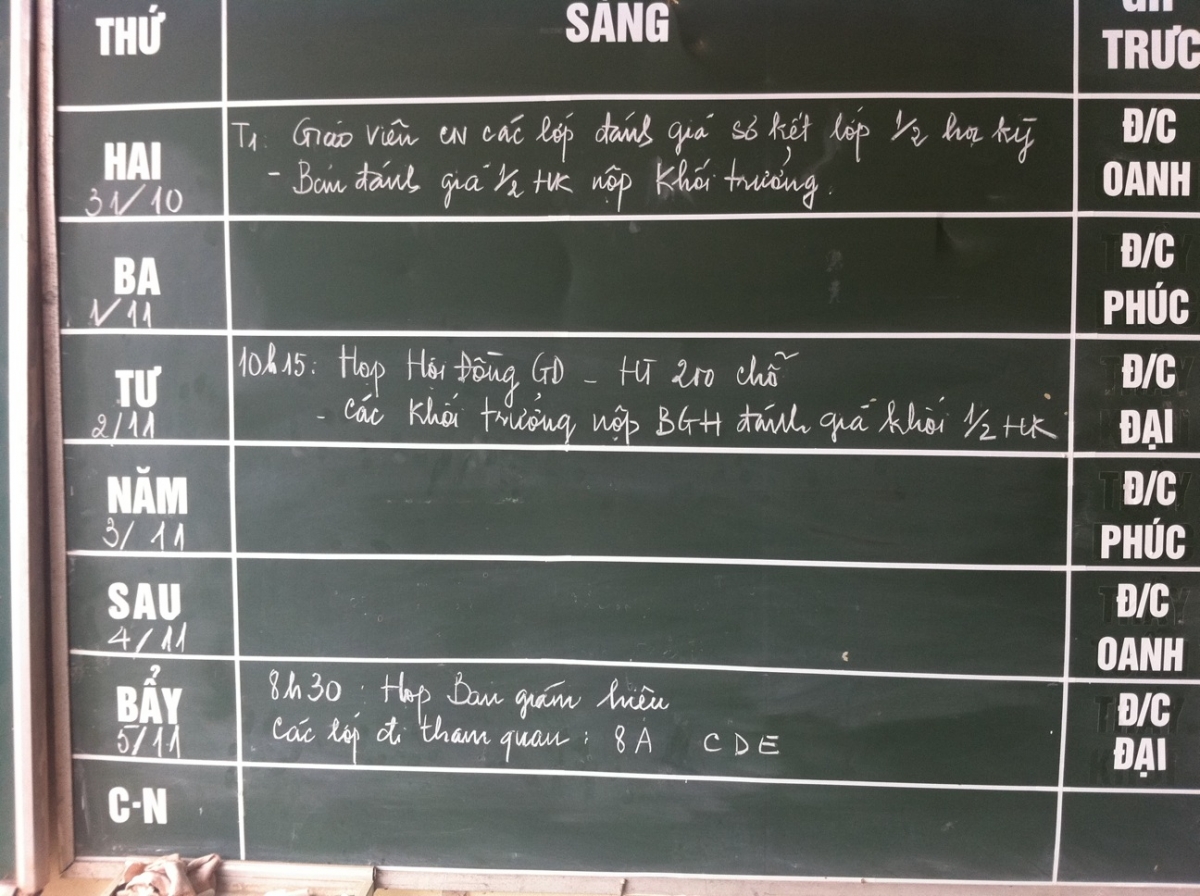 THỨ
SÁNG
TRỰC
HAI
31/10
T1: Giáo viên CN các lớp đánh giá sơ kết lớp 1/2 học kỳ
- Bản đánh giá 1/2 HK nộp Khối trưởng.
Đ/C
OANH
BA
1/11
Đ/C
PHÚC
TƯ
2/11
10h15: Họp Hội Đồng GD - HT 200 chỗ
- Các Khối trưởng nộp BGH đánh giá khối 1/2 HK
Đ/C
ĐẠI
NĂM
3/11
Đ/C
PHÚC
SAU
4/11
Đ/C
OANH
BẨY
5/11
8h30: Họp Ban giám hiệu
Các lớp đi tham quan: 8A CDE
Đ/C
ĐẠI
C-N